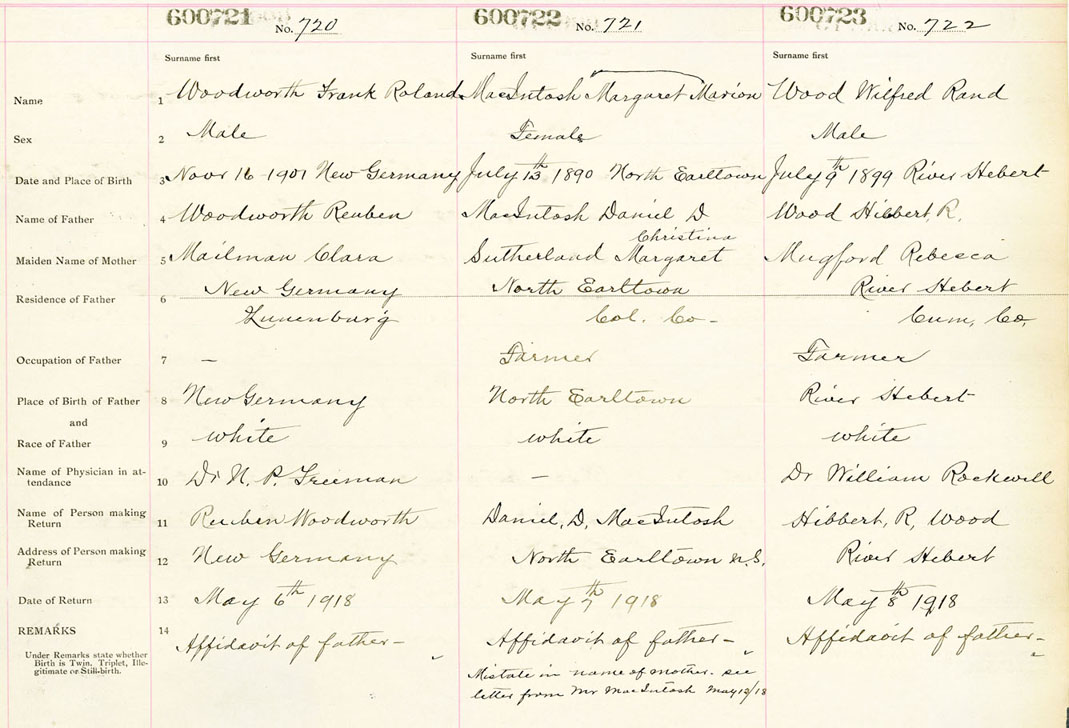 600721 No. 720 600722 No. 721 600723 No. 722
Surname first Surname first Surname first
Name 1 Woodworth Frank Roland MacIntosh Margaret Marion Wood Wilfred Rand
Sex 2 Male Female Male
Date and Place of Birth 3 Novr 16 1901 New Germany July 13th 1890 North Earltown July 9th 1899 River Hebert
Name of Father 4 Woodworth Reuben MacIntosh Daniel D Wood Hibbert, R.
Christina
Maiden Name of Mother 5 Mailman Clara Sutherland Margaret Mugford Rebecca
Residence of Father 6 New Germany North Earltown River Hebert
Lunenburg Col. Co- Cum, Co,
Occupation of Father 7 — Farmer Farmer
Place of Birth of Father 8 New Germany North Earltown River Hebert
and
Race of Father 9 white white white
Name of Physician in at-
tendance 10 Dr N. P. Freeman — Dr William Rockwell
Name of Person making
Return 11 Reuben Woodworth Daniel, D, MacIntosh Hibbert, R, Wood
Address of Person making
Return 12 New Germany North Earltown N.S. River Hebert
Date of Return 13 May 6th 1918 May 7th 1918 May 8th 1918
REMARKS 14 Affidavit of father- Affidavit of father- Affidavit of father-
Under Remarks state whether
Birth is Twin, Triplet, Ille-
gitimate or Still-birth.
Mistate in name of mother. see
letter from Mr MacIntosh May 13/18